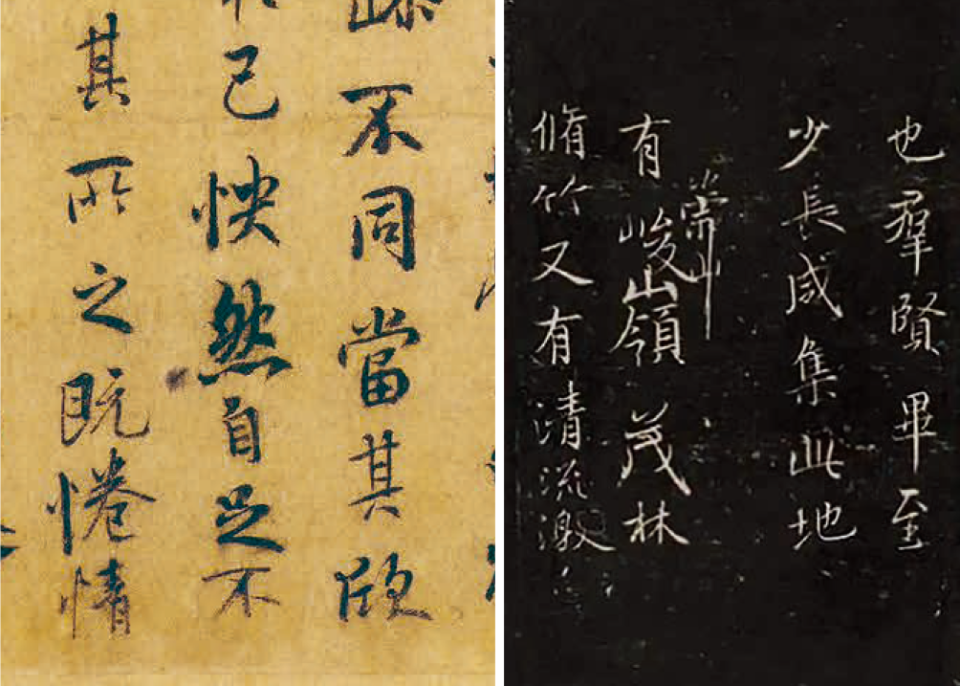 不同當其欣
己怏然自足不
其所之既惓情
也羣賢畢至
少長咸集此地
有崇山峻嶺茂林
脩竹又有清流激